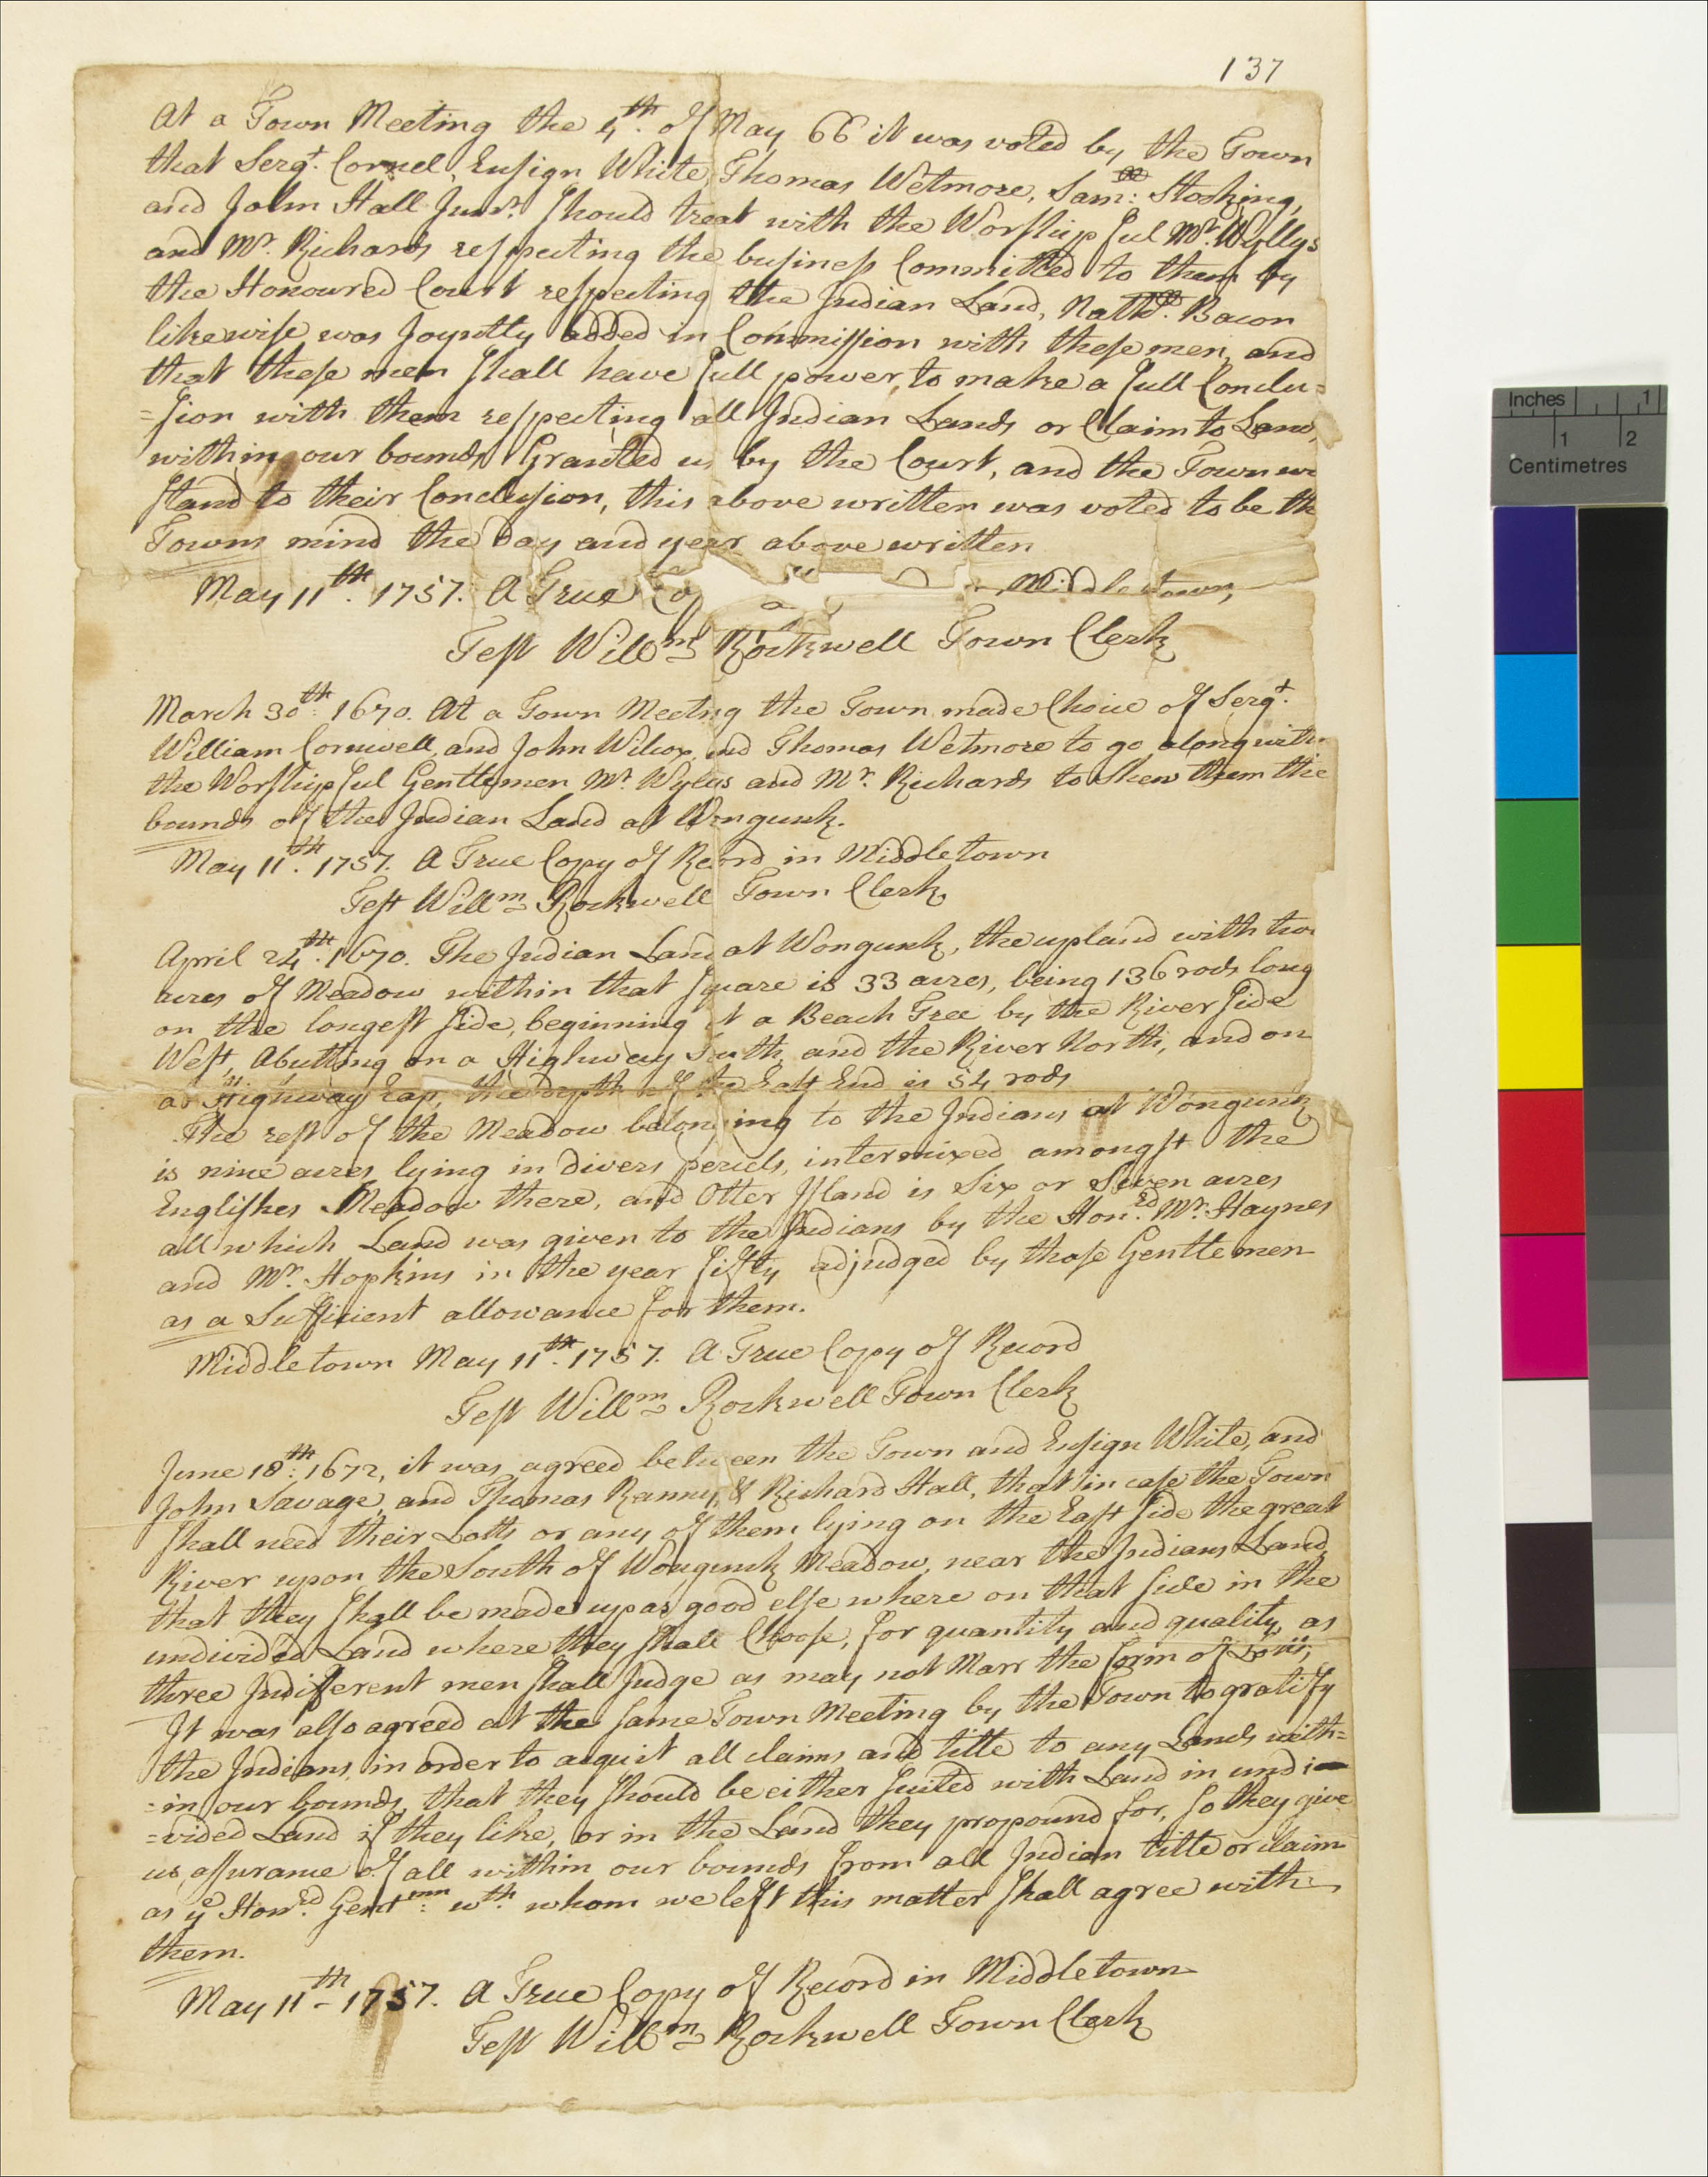 137
At a Town Meeting the 4th. of May 66 it was voted by the Town
that Sergt. Cornel, Ensign White, Thomas Wetmore, Sam: Stocking,
and John Hall Junr. should treat with the Worshipful Mr. Wyllys
and Mr. Richards respecting the business Committed to them by
the Honoured Court respecting the Indian Land, Nathll. Bacon
likewise was Joyntly added in Commission with these men, and
that these men shall have full power, to make a full Conclu=
=sion with them respecting all Indian Lands or Claim to Land,
within our bounds Granted us by the Court, and the Town
stand to their Conclusion, this above written was voted to be th
Towns mind the Day and year above written
May 11th. 1757. A True Middletown,
Test Willm Rockwell Town Clerk
March 30th: 1670. At a Town Meeting the Town made Choice of Sergt.
William Cornwell, and John Wilcox, and Thomas Wetmore to go along with
the Worshipful Gentlemen Mr. Wylys and Mr. Richards to shew them the
bounds of the Indian Land at Wongunk.
May 11th. 1757. A True Copy of Record in Middletown
Test Willm Rockwell Town Clerk
April 24th. 1670. The Indian Land at Wongunk, the upland with two
acres of Meadow within that square is 33 acres, being 136 rods long
on the longest side, beginning at a Beach Tree by the River side
West, Abutting on a Highway South, and the River North, and on
a Highway East, the depth of the East End is 54 rods
The rest of the Meadow belonging to the Indians at Wongunk
is nine acres, lying in Divers percels, intermixed amongst the
Englishes Meadow there, and Otter Island is Six or Seven acres
all which Land was given to the Indians by the Hon.ed Mr. Haynes
and Mr. Hopkins in the year fifty adjudged by those Gentlemen
as a Sufficient allowance for them.
Middletown May 11th. 1757. A True Copy of Record
Test Willm Rockwell Town Clerk
June 18th: 1672, it was agreed between the Town and Ensign White, and
John Savage, and Thomas Ranny, & Richard Hall, that in case the Town
shall need their Lotts or any of them lying on the East side the great
River upon the South of Wongunk Meadow, near the Indians Land,
that they shall be made up as good elsewhere on that side in the
undivided Land where they shall Choose, for quantity and quality, as
three Indifferent men shall Judge as may not Marr the form of Lotts,
It was also agreed at the same Town Meeting by the Town to gratify
the Indians, in order to acquit all claims and title to any Lands with=
=in our bounds, that they should be either suited with Land in undi=
=vided Land if they like, or in the Land they propound for, so they give
us assurance of all within our bounds from all Indian title or claim
as ye Honrd. Gentmn: wth. whom we left this matter shall agree with
them.
May 11th - 1757. A True Copy of Record in Middletown
Test Willm Rockwell Town Clerk
Inches 1
1 2
Centimetres